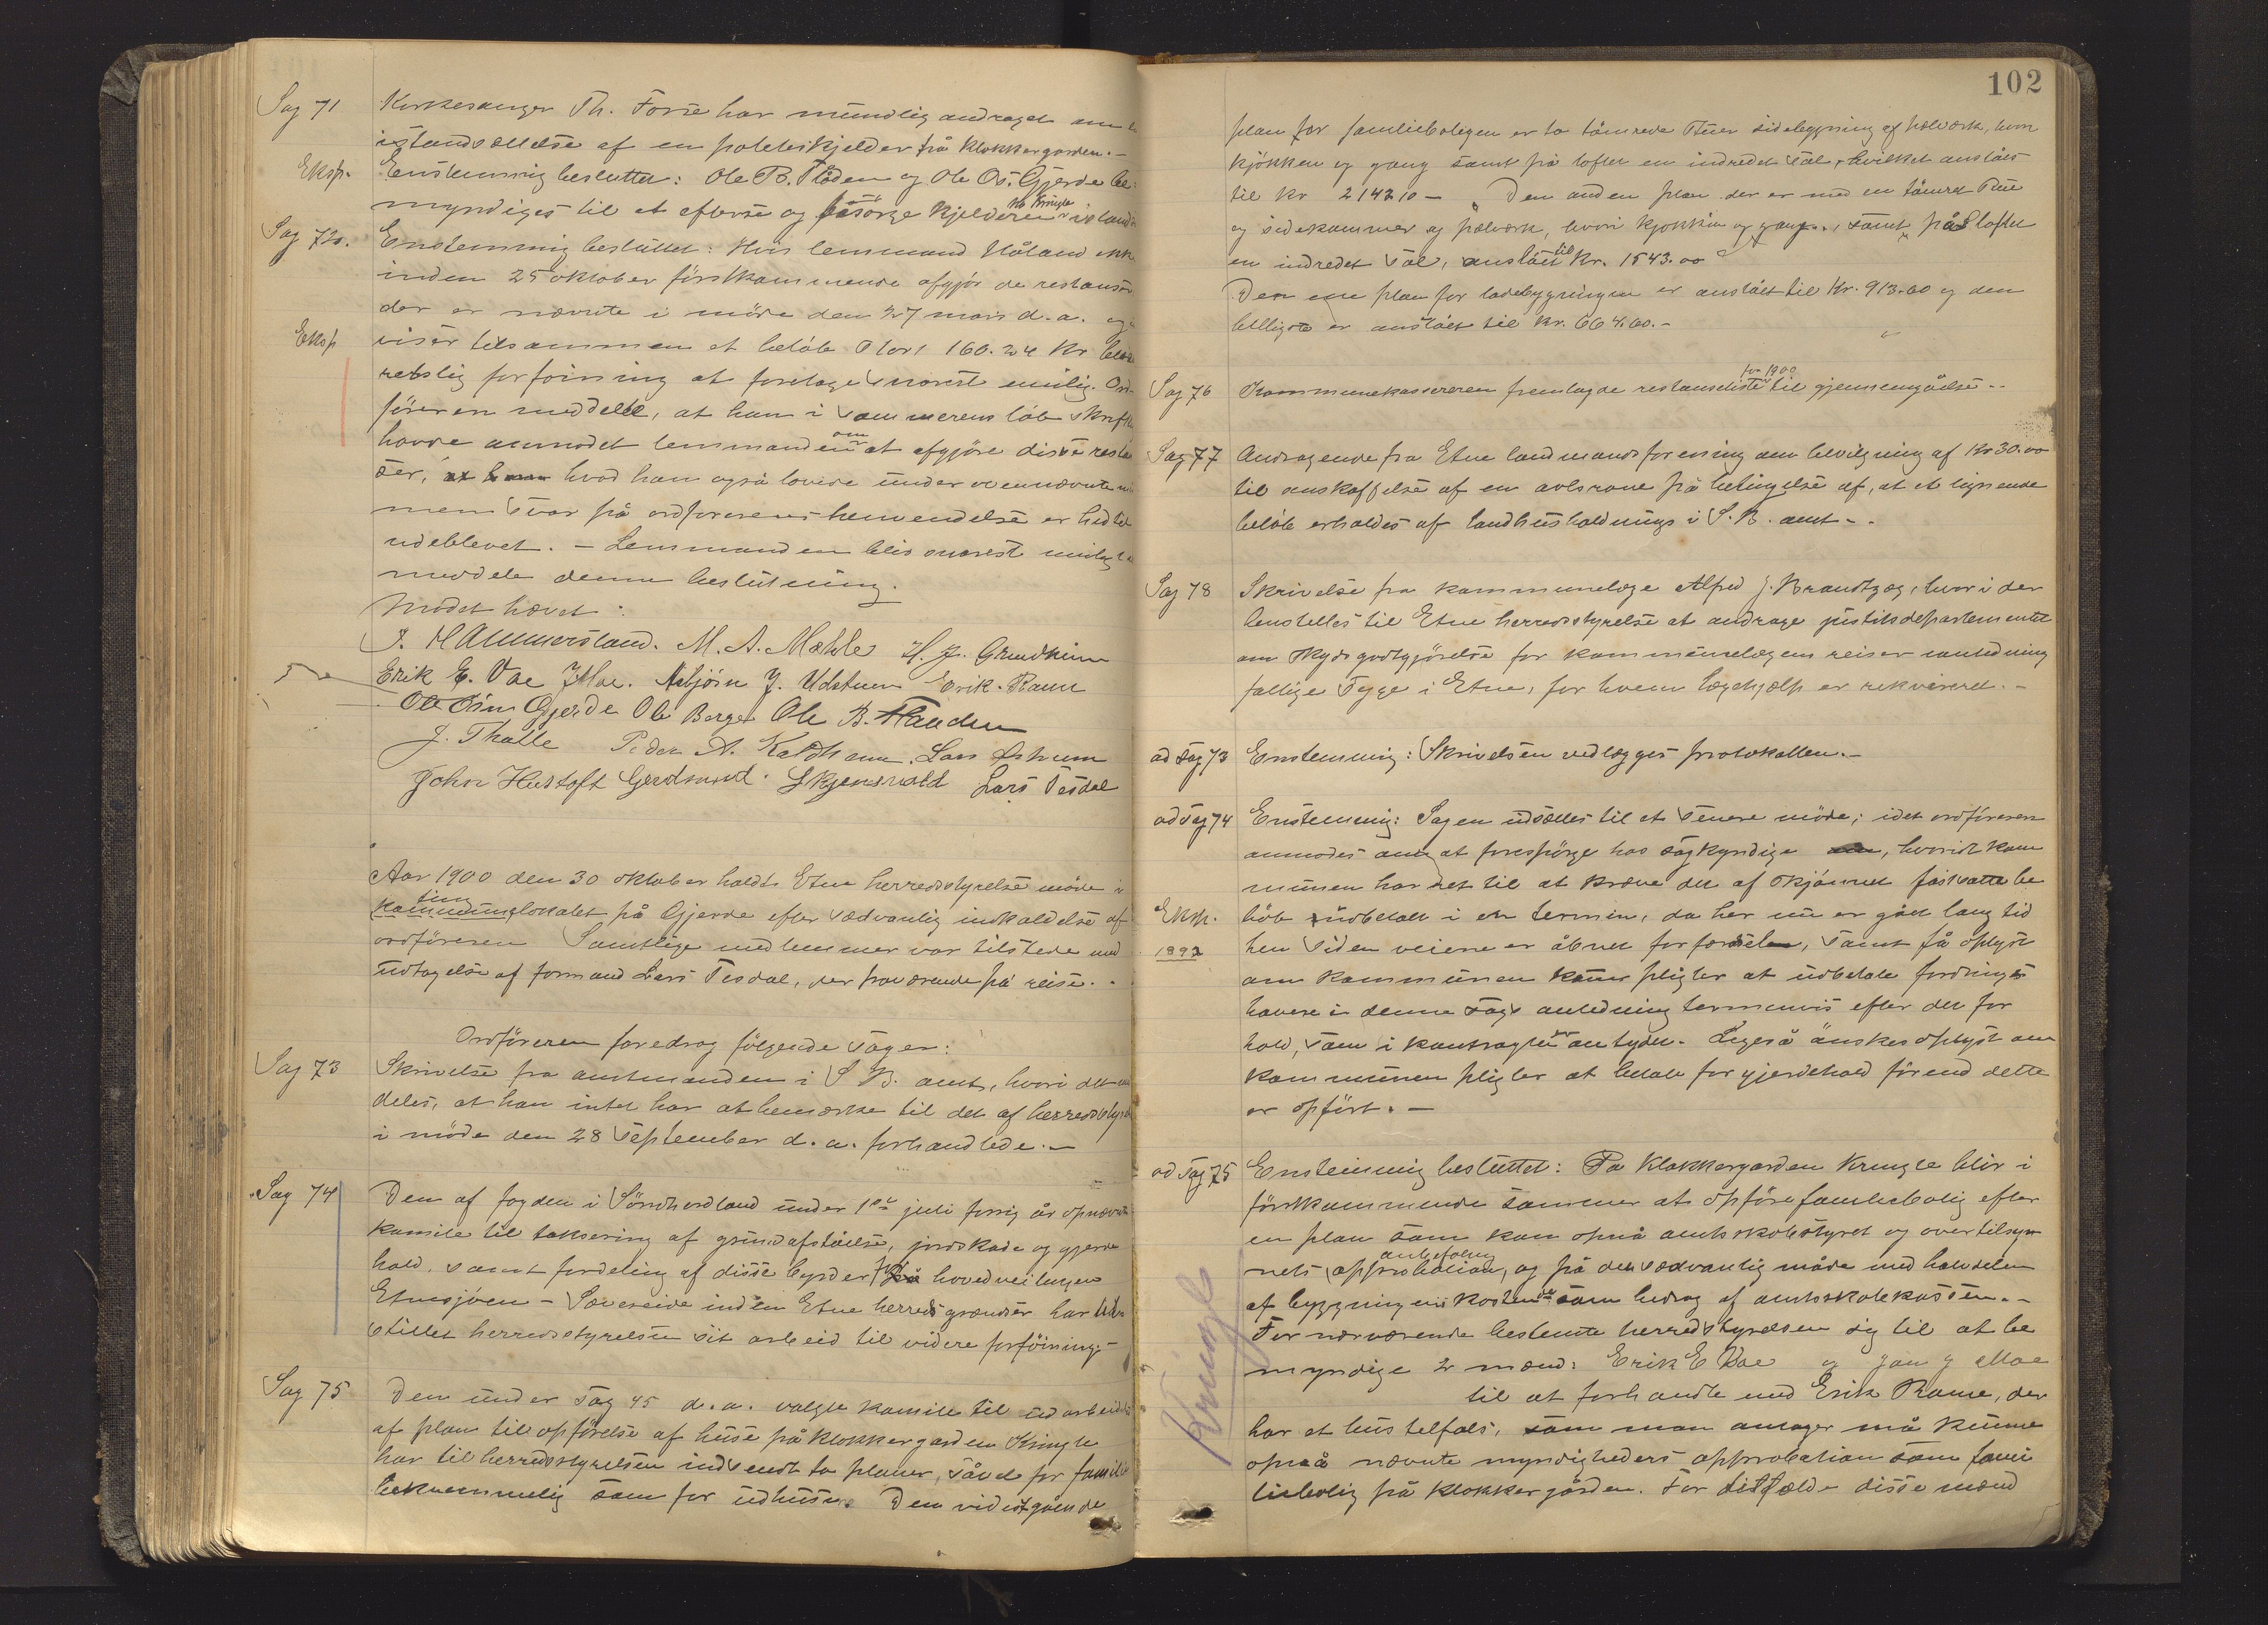 Sag 71 Kirkesanger Th. Forre har mundlig andraget om
istandsættelse af en poteteskjelder på Klokkergarden.-
Eksp. Enstemmig besluttet: Ole B. Fláden og Ole Os. Gjerde be-
myndiges til at efterse og besørge kjelderen på Kringle istand
Sag 72. Enstemmig besluttet: Hvis lensmand Håland ikke
inden 25 oktober førstkommende afgjør de restanser
der er nævnte i møde den 27 mars d.a. og
Eksp viser tilsammen et beløb stort 160.24 kr
retslig forføining at foretage snarest mulig. Ord-
føreren meddelte, at han i sommerens løb skriftlig
havde anmodet lensmanden om at afgjøre disse restan
ser, hvad han også lovede under ovennævnte
men svar på ordførerens henvendelse er hidtil
udeblevet. - Lensmanden blir snarest mulig at
meddele denne beslutning.
Mødet hævet.
I. Hammersland. M. A. Mæhle H. J. Grindheim
Erik E. Vae J Moe. Asbjørn J. Udstuen Erik Rame
Ole Øsin Gjerde Ole Berge Ole B. Flaaden
J. Thalle Peder A. Kaldheim. Lars Østrem
John Hustoft Gerdmund Skjensvold Lars Tesdal
Aar 1900 den 30 oktober holdt Etne herredsstyrelse møde i
tinglokalet på Gjerde efter sædvanlig indkaldelse af
ordføreren Samtlige medlemmer var tilstede med
undtagelse af formand Lars Tesdal, der fraværende på reise.
Ordføreren foredrog følgende sager:
Sag 73 Skrivelse fra amtmanden i S B. amt, hvori det med
deles, at han intet har at bemærke til det af herredsstyrel
i møde den 28 september d.a. forhandlede.-
Sag 74 Den af fogden i Søndhordland under 1ste juli forrig år opnævnte
komite til taksering af grundafståelse, jordskade og gjerde
hold, samt fordeling af disse byrder for hovedveilinjen
Etnesjøen - Sævereide inden Etne herreds grændser har
stillet herredsstyrelsen sit arbeid til videre forføining.-
Sag 75 Den under sag 45 d.a. valgte komite til udarbeidelse
af plan til opførelse af huse på klokkergarden Kringle
har til herredsstyrelsen indsendt to planer, såvel for familie
bekvemmelig som for udhuse. Den videstgående
102
plan for familieboligen er to tømrede stuer sidebygning af pælværk, hvori
kjøkken og gang samt på loftet en indredet sal, hvilket anslåes
til kr 2142.10 - Den anden plan der er med en tømret stue
og sidekammer og pælværk, hvori kjøkken og gang, samt på loftet
en indredet sal, anslået til kr. 1543.00
Den ene plan for ladebygningen er anslået til kr. 913.60 og den
billigste er anslået til kr. 664.60.-
Sag 76 Kommunekassereren fremlagde restanseliste for 1900 til gjennemgåelse..
Sag 77 Andragende fra Etne landmandsforening om bevilgning af kr 30.00
til anskaffelse af en avlsrone på betingelse af, at et lignende
beløb erholdes af landhusholdnings i S. B. amt..
Sag 78 Skrivelse fra kommunelæge Alfred J. Brandtzæg, hvori der
henstilles til Etne herredsstyrelse at andrage justitsdepartementet
om skydsgodtgjørelse for kommunelægens reiser i anledning
fattige syge i Etne, for hvem lægehjælp er rekvireret.-
ad Sag 73 Enstemmig: Skrivelsen vedlægges protokollen.-
ad Sag 74 Enstemmig: Sagen udsættes til et senere møde; idet ordføreren
anmodes om at forespørge hos sagkyndige, hvorvidt kom
munen har ret til at kræve det af skjønnet fastsatte be
Eksp. løb udbetalt i en termin, da her nu er gået lang tid
1892 hen siden veiene er åbnet for færdselen, samt få oplyst
om kommunen pligter at udbetale fordrings
havere i denne sags anledning terminvis efter det for
hold, som i kontrakten er antydet. Ligeså ønskes oplyst om
kommunen pligter at betale for gjerdehold førend dette
er opført. -
ad Sag 75 Enstemmig besluttet: På Klokkergarden Kringle blir i
førstkommende sommer at opføre familiebolig efter
en plan som kan opnå amtsskolestyret og overtilsyn
nets anbefaling approbation, og på den sædvanlig måde med halvdelen
af bygningens kostende som bidrag af amtsskolekassen.-
For nærværende bestemte herredsstyrelsen sig til at be
myndige 2 mænd: Erik E Vae og Jon J Moe
til at forhandle med Erik Rame, der
Kringle
har et hus tilfals, som man antager må kunne
opnå nævnte myndigheders approbation som fami
liebolig på klokkergården. For ditfælde disse mænd